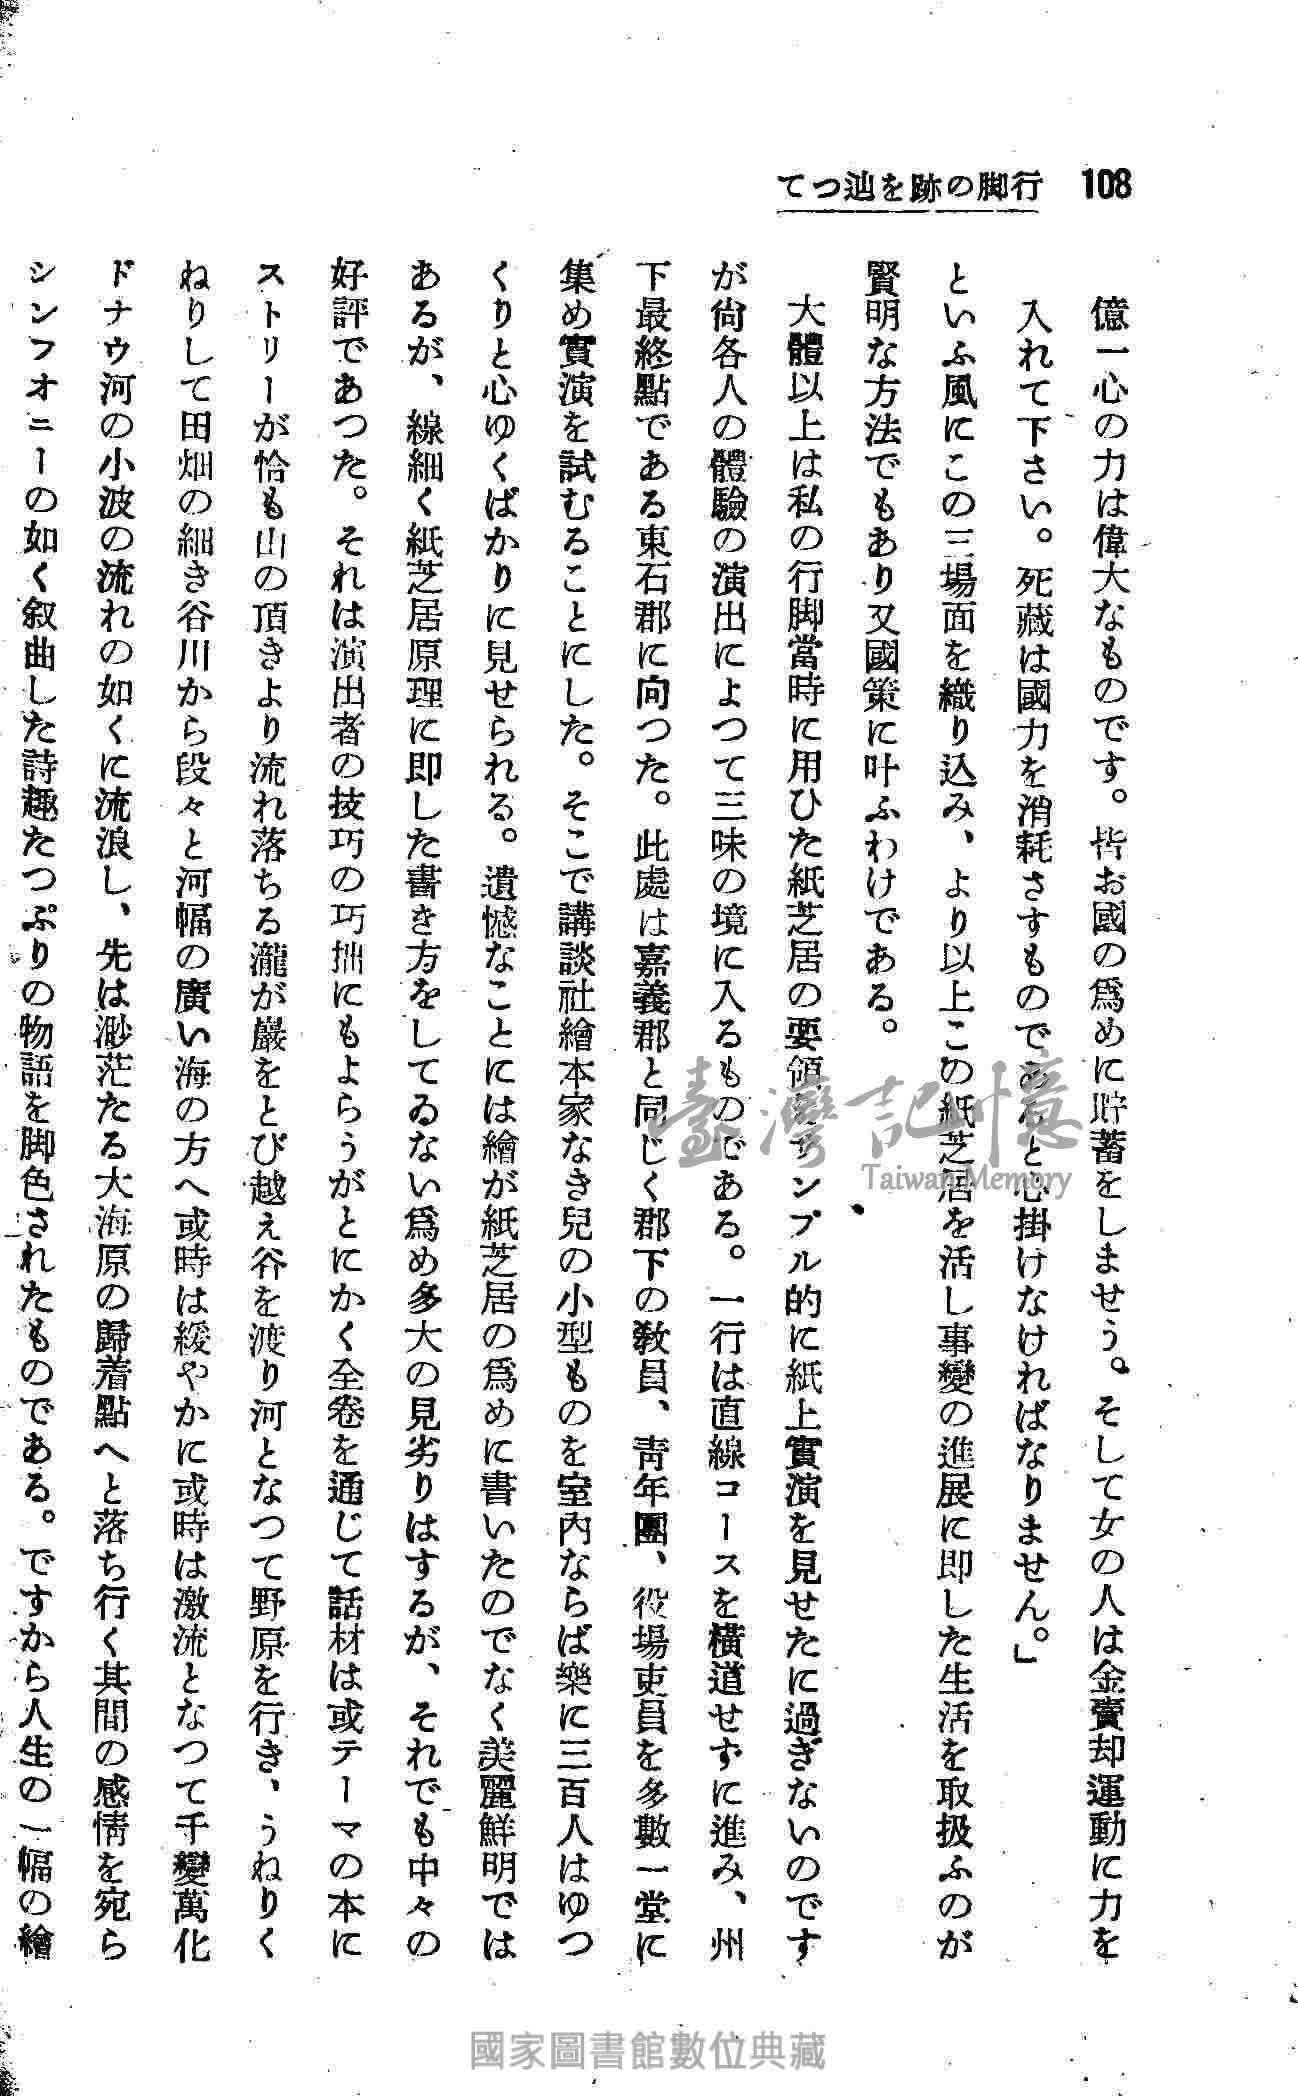 108 行脚の跡を辿つて
億一心の力は偉大なものです。皆お國の爲めに貯蓄をしませう。そして女の人は金賣却運動に力を
入れて下さい。死藏は國力を消耗さすものであると心掛けなければなりません。」
といふ風にこの三場面を織り込み、より以上この紙芝居を活し事變の進展に即した生活を取扱ふのが
賢明な方法でもあり又國策に叶ふわけである。
大體以上は私の行脚當時に用ひた紙芝居の要領をサンプル的に紙上實演を見せたに過ぎないのです
が尙各人の體驗の演出によつて三味の境に入るものである。一行は直線コースを橫道せずに進み、州
下最終點である東石郡に向つた。此處は嘉義郡と同じく郡下の敎員、靑年團、役場吏員を多數一堂に
集め實演を試むることにした。そこで講談社繪本家なき兒の小型ものを室內ならば樂に三百人はゆつ
くりと心ゆくばかりに見せられる。遺憾なことには繪が紙芝居の爲めに書いたのでなく美麗鮮明では
あるが、線細く紙芝居原理に即した書き方をしてゐない爲め多大の見劣りはするが、それでも中々の
好評であつた。それは演出者の技巧の巧拙にもよらうがとにかく全卷を通じて話材は或テーマの本に
ストリーが恰も山の頂きより流れ落ちる瀧が巖をとび越え谷を渡り河となつて野原を行き、うねりく
ねりして田畑の細き谷川から段々と河幅の廣い海の方へ或時は緩やかに或時は激流となつて千變萬化
ドナウ河の小波の流れの如くに流浪し、先は渺茫たる大海原の歸着點へと落ち行く其間の感情を宛ら
シンフオニーの如く叙曲した詩趣たつぷりの物語を脚色されたものである。ですから人生の一幅の繪
臺灣記憶
Taiwan Memory
國家圖書館數位典藏